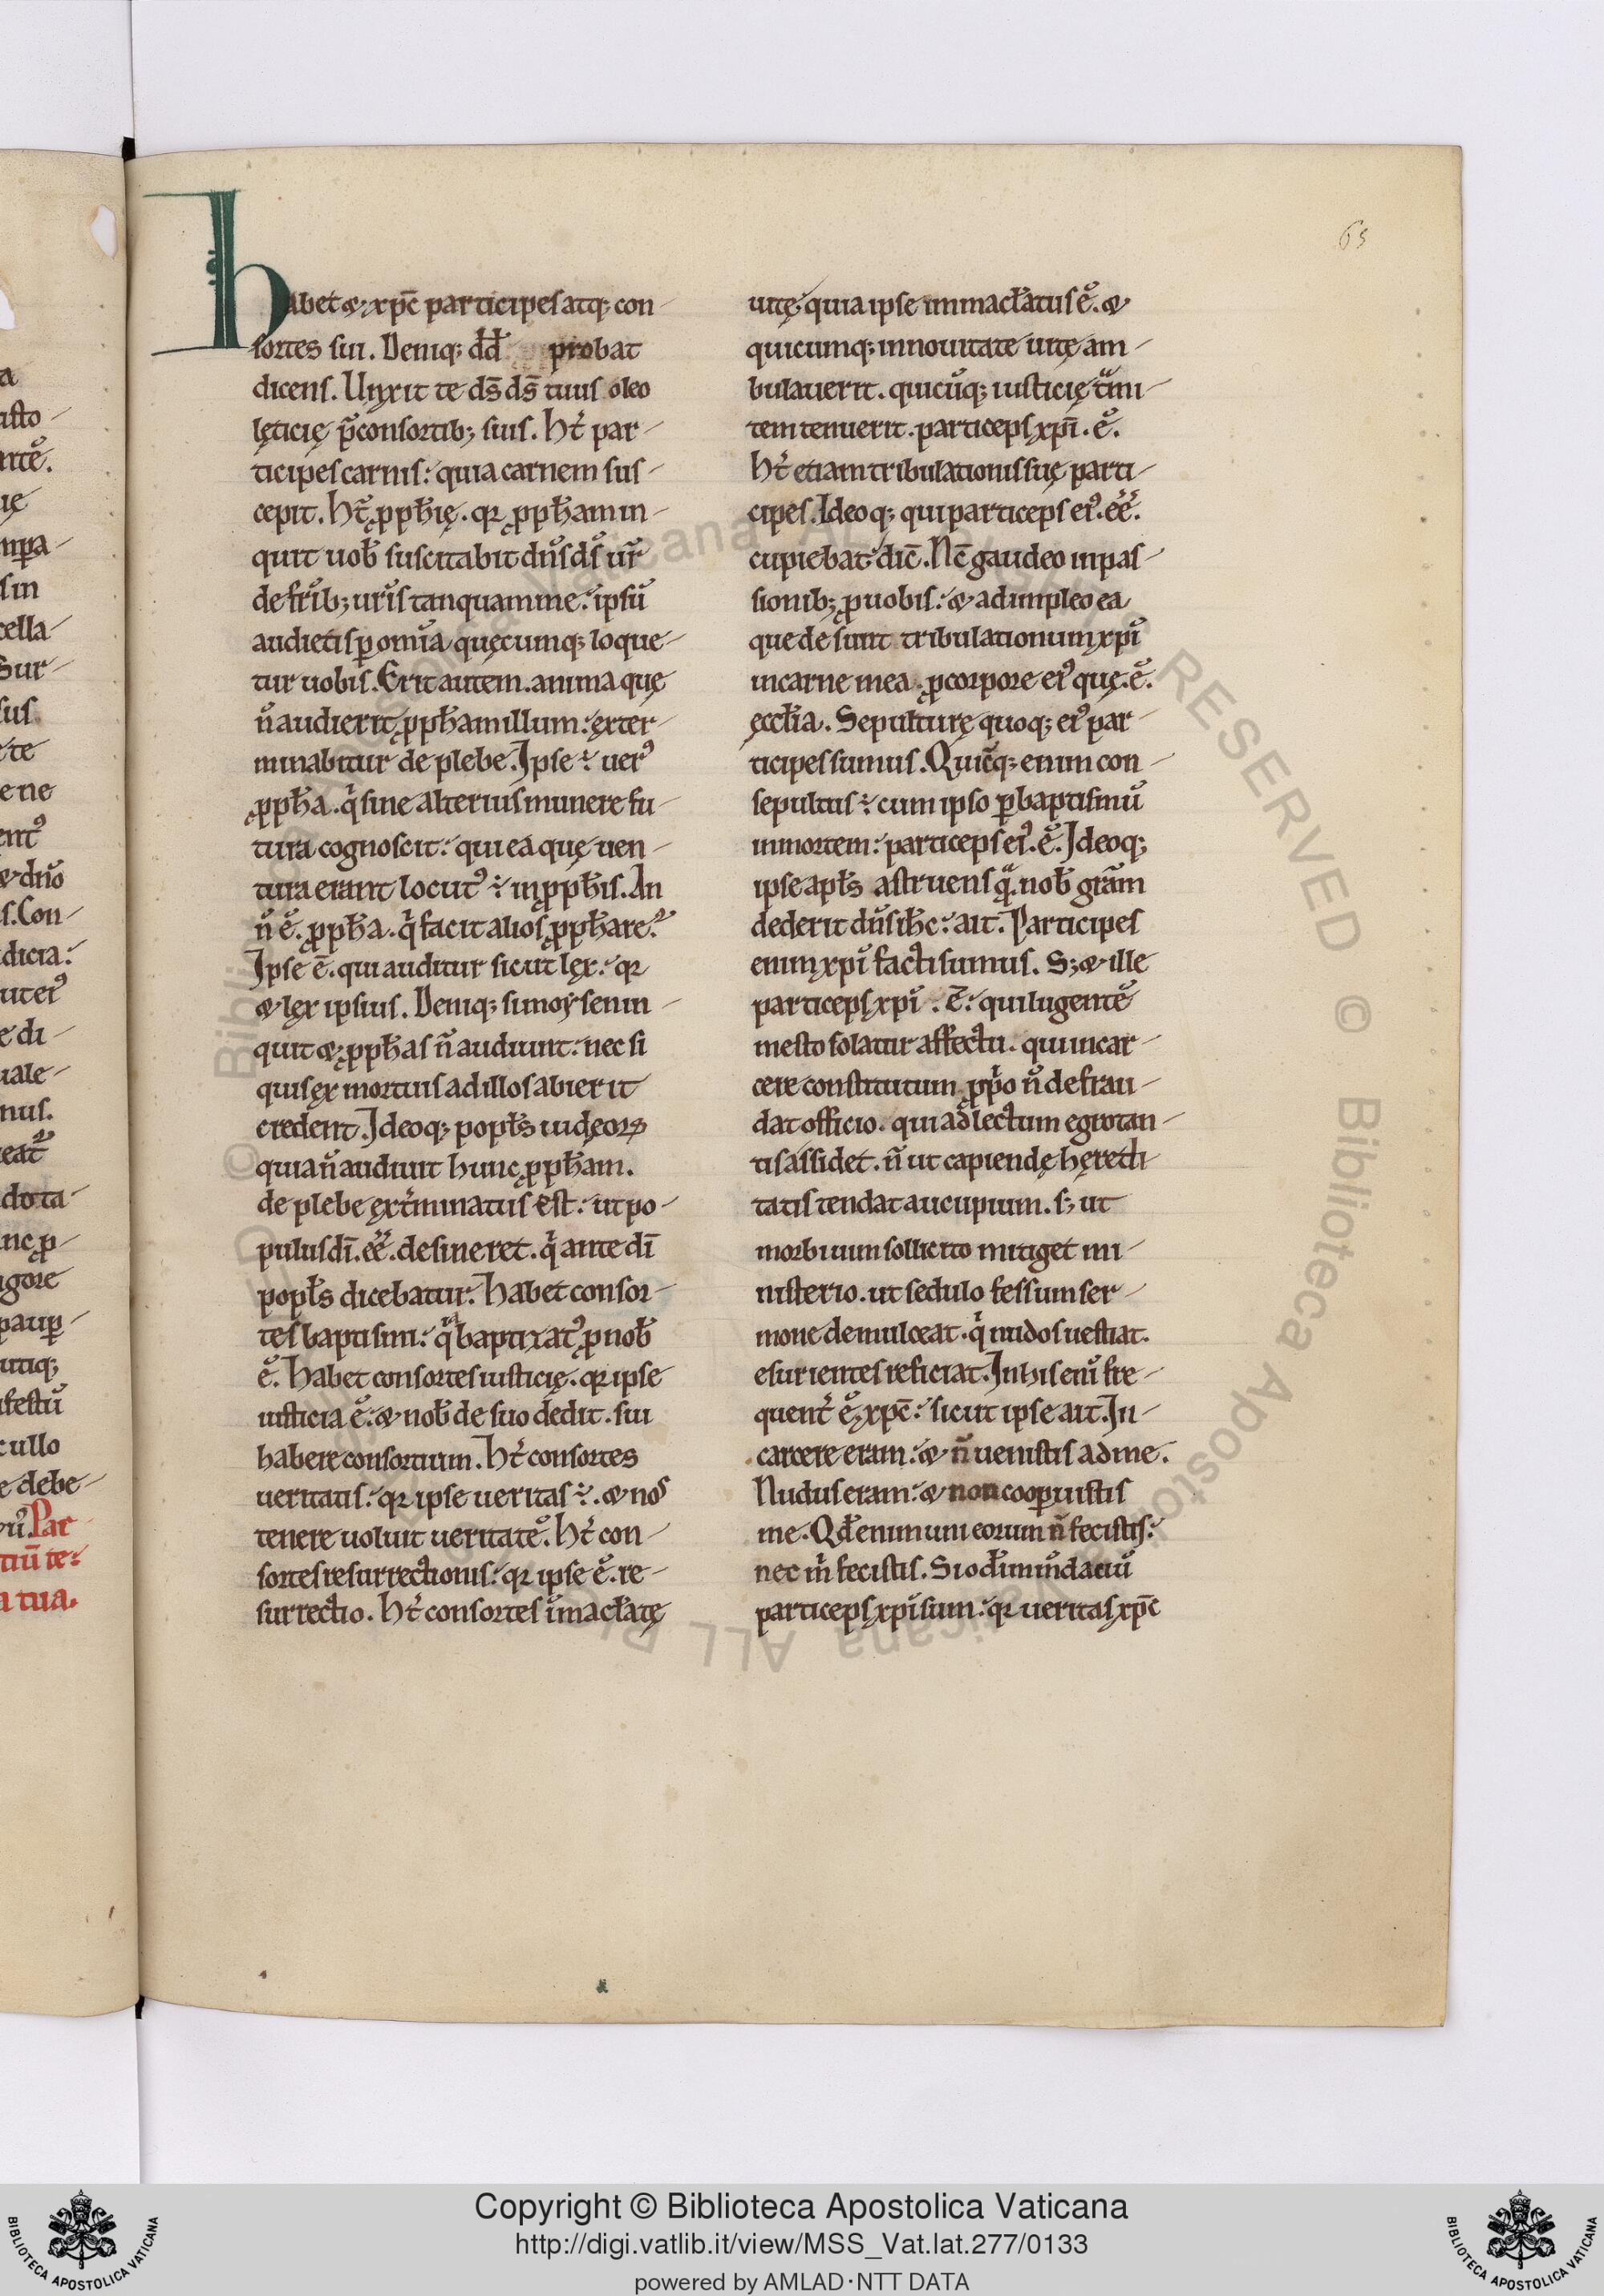 a
usto-
ntē.
ię
mpa-
sin
cella-
Sur-
sus
te
ene
ent᷒
& dn̄o
s. Con-
dicia:
utei᷒
e di-
uale-
nus.
eat᷒
dota-
nc ꝓ-
igore
pauꝑ-
utiq;
ifestū
cullo
e debe-
rū. Par-
tiū te:
a tua.
Habet & xp̄c participes atq; con-
sortes sui. Deniq; dd̄ probat
dicens. Unxit te ds̄ ds̄ tuus oleo
lęticię p̄consortib; suis. Ht̄ par-
ticipes carnis: quia carnem sus-
cepit. Ht̄ ꝓph̄ię. qꝛ ꝓph̄am in-
quit uob̄ suscitabit dn̄s ds̄ ur̄
de frīb; urīs tanquam me: ipsū
audietis ꝑ omīa quęcumq; loque-
tur uobis. Erit autem. anima quę
n̄ audierit ꝓph̄am illum: exter-
minabitur de plebe. Ipse ÷ uer᷒
ꝓph̄a. q̇ sine alterius munere fu-
tura cognoscit: qui ea quę uen-
tura erant locut᷒ ÷ in ꝓph̄is. An
n̄ ē. ꝓph̄a. q̇ facit alios ꝓph̄are?
Ipse ē. qui auditur sicut lex: qꝛ
& lex ipsius. Deniq; si moẏsen in-
quit & ꝓph̄as n̄ audiunt: nec si
quis ex mortuis ad illos abierit
credent. Ideoq; popłs iudęoꝝ
quia n̄ audiuit hunc ꝓph̄am.
de plebe ext̄minatus est: ut po-
pulus dī. eē. desineret. q̇ ante dī
popłs dicebatur. Habet consor-
tes baptismi: q̇a baptizat᷒ ꝓ nob̄
ē. Habet consortes iusticię. qꝛ ipse
iusticia ē: & nob̄ de suo dedit. sui
habere consortium. Ht̄ consortes
ueritatis: qꝛ ipse ueritas ÷. & nos
tenere uoluit ueritatē. Ht̄ con-
sortes resurrectionis: qꝛ ipse ē. re-
surrectio. Ht̄ consortes īmacłatę
65
uitę: quia ipse immacłatus ē. &
quicumq; in nouitate uitę am-
bulauerit. quicūq; iusticię tᵃmi-
tem tenuerit. particeps xpī. ē.
Ht̄ etiam tribulationis suę parti-
cipes. Ideoq; qui particeps ei᷒. eē.
cupiebat dic̄. Nc̄ gaudeo in pas-
sionib; ꝓ uobis: & adimpleo ea
que desunt tribulationum xpī
in carne mea. ꝓ corpore ei᷒ quę. ē.
ęccłia. Sepulturę quoq; ei᷒ par-
ticipes sumus. Quic̄q; enim con-
sepultus ÷ cum ipso ꝑ baptismū
in mortem: particeps ei᷒. ē. Ideoq;
ipse apłs astruens qᵃ. nob̄ grām
dederit dn̄s ih̄c: ait. Participes
enim xpī facti sumus. S; & ille
particeps xpī. ē: qui lugentē
mesto solatur affectu. qui in car-
cere constitutum ꝓpˢo n̄ defrau-
dat officio. qui ad lectum egrotan-
tis assidet. n̄ ut capiendę heredi-
tatis tendat aucupium. s; ut
morbiuum sollicito mitiget mi-
nisterio. ut sedulo fessum ser-
mone demulceat. q̇ nudos uestiat.
esurientes reficiat. In his enī fre-
quent̄ ē. xp̄c: sicut ipse ait. In-
carcere eram: & n̄ uenistis ad me.
Nudus eram: & non cooꝑuistis
me. Qd̄ enim uni eorum n̄ fecistis:
nec m̄ fecistis. Si od̄im mēndaciū
particeps xpī sum: qꝛ ueritas xp̄c
Copyright © Biblioteca Apostolica Vaticana
http://digi.vatlib.it/view/MSS_Vat.lat.277/0133
powered by AMLAD·NTT DATA
BIBLIOTECA APOSTOLICA VATICANA
BIBLIOTECA APOSTOLICA VATICANA